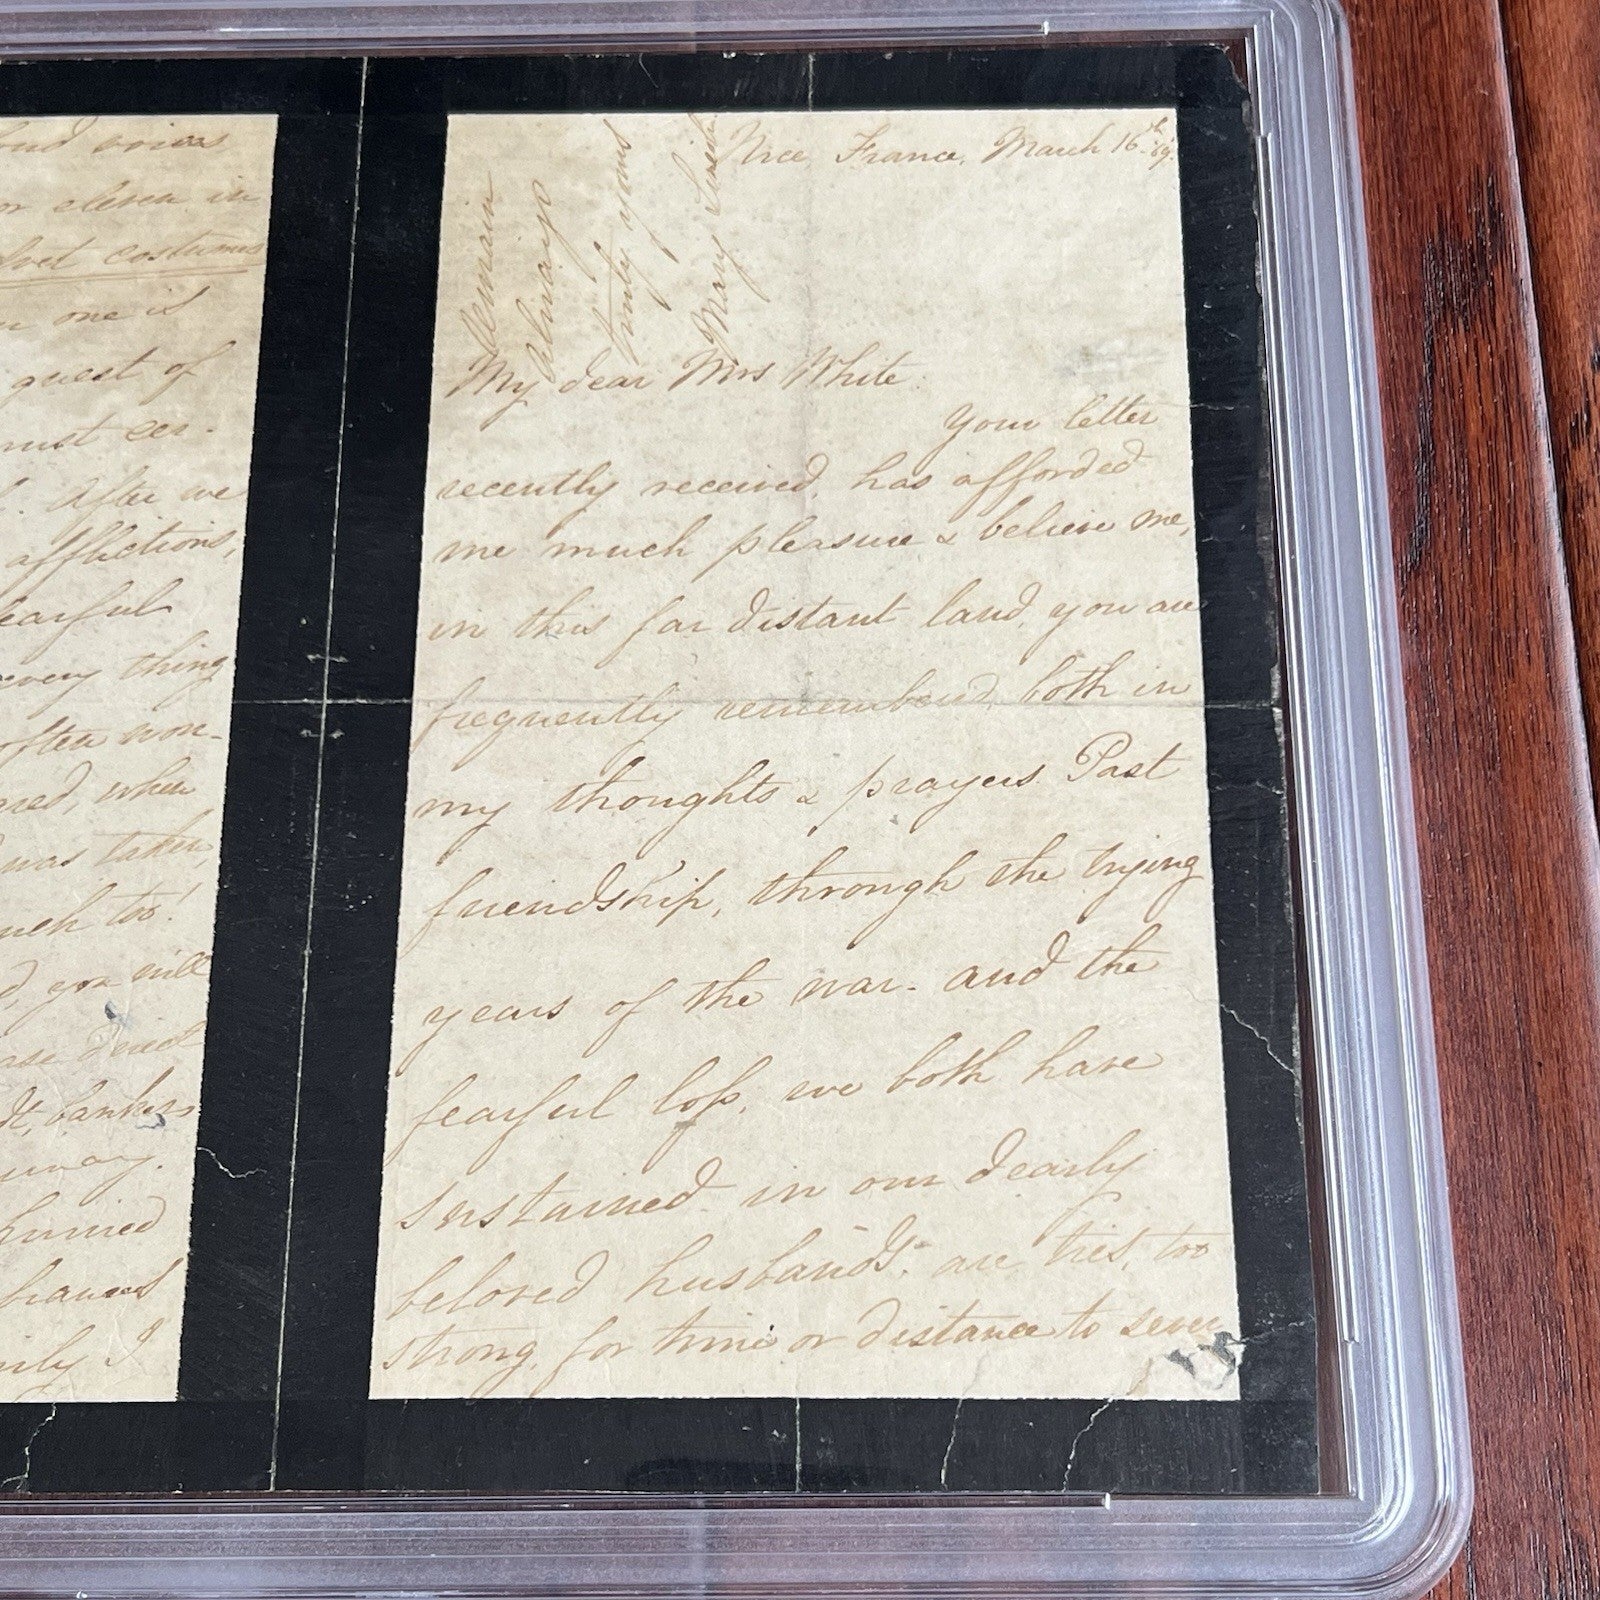 oud voices
or eleven in
lvet costumes
one is
guest of
must cer-
After we
afflictions,
earful
every thing
often won-
ned, when
was taken,
uch too!
d, you will
ase direct
dt, bankers
many.
hurried
frances
ily I
Nice, France, March 16th '69.
remain
always
truly yours
Mary Lincoln
My dear Mrs White.
Your letter
recently received, has afforded
me much pleasure & believe me,
in this far distant land, you are
frequently remembered, both in
my thoughts & prayers. Past
friendship, through the trying
years of the war - and the
fearful loss, we both have
sustained - in our dearly
beloved husbands - are ties, too
strong, for time or distance to sever